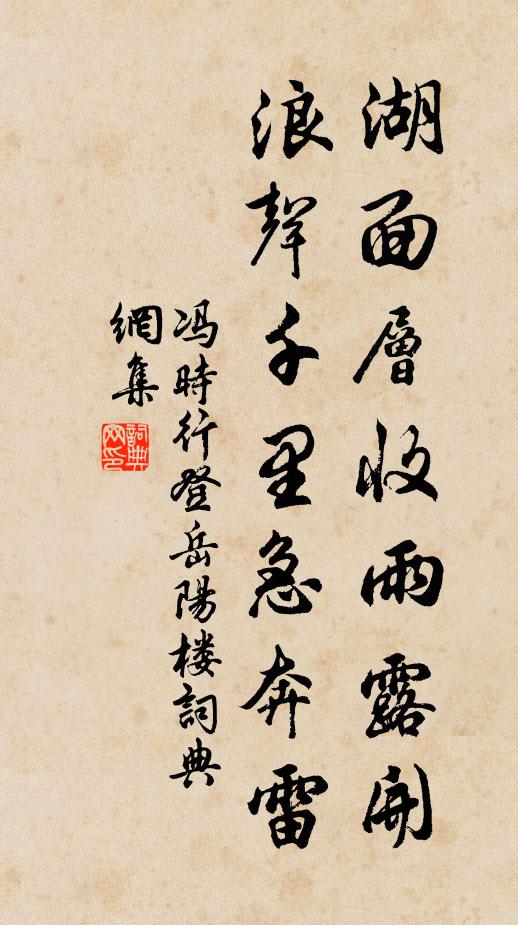 湖面層收雨露開
浪聲千里急奔雷
冯時行登岳陽楼詞典
網集
詞典
网印